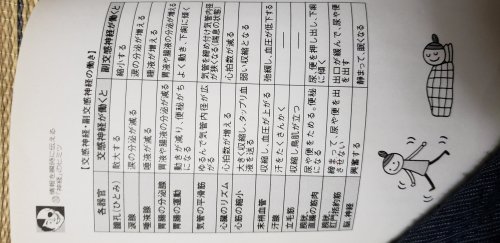 情報を瞬時に伝える
「神経」のヒミツ
【交感神経・副交感神経の働き】
各器官 交感神経が働くと 副交感神経が働くと
瞳孔(ひとみ) 散大する 縮小する
涙腺 涙の分泌が減る 涙の分泌が増える
唾液腺 唾液が減る 唾液が増える
胃腸の分泌腺 胃液や腸液の分泌が減る 胃液や腸液の分泌が増える
胃腸の運動 動きが減り、便秘がちになる よく動き、下痢に傾く
気管の平滑筋 ゆるんで気管内径が広がる 気管を締め付け気管内径が狭くなる(喘息の状態)
心拍のリズム 心拍数が増える 心拍数が減る
心筋の収縮 強く収縮し、タップリ血液を送る 弱い収縮となる
末梢血管 収縮し、血圧が上がる 弛緩し、血圧が低下する
汗腺 汗をたくさんかく ―
立毛筋 収縮し鳥肌が立つ ―
膀胱、直腸の筋肉 尿や便をためる。便秘になる 尿、便を押し出し、下痢に傾く
膀胱、肛門括約筋 締まって、尿や便を出させない 出口が緩んで、尿や便を出す
脳、神経 興奮する 静まって、眠くなる